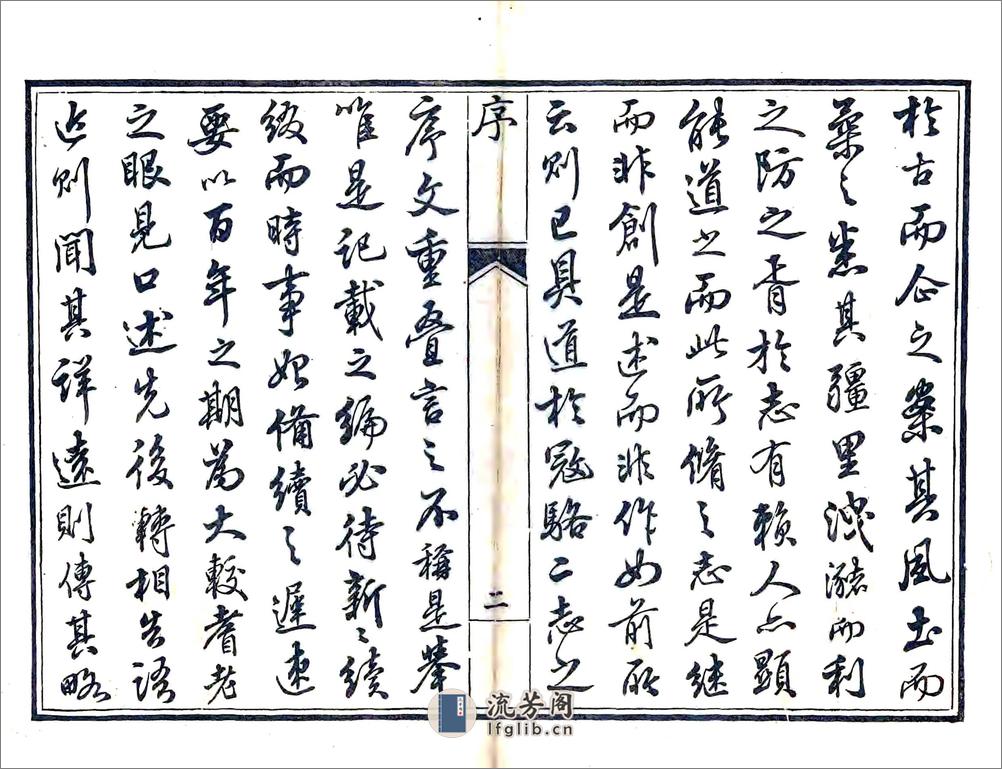 於古而企之其風土而
之悉其疆里洩瀦而利
之防之胥於志有賴人亦顯
能道之而此所脩之志是繼
而非創是述而非作如前所
云則已具道於寇駱二志之
序
二
序文重叠言之不稱是舉
唯是記載之編必待新〻續
綴而時事始備續之遲速
要以百年之期為大較耆老
之眼見口述先後轉相告語
近則聞其詳遠則傳其略
流芳阁
lfglib.cn